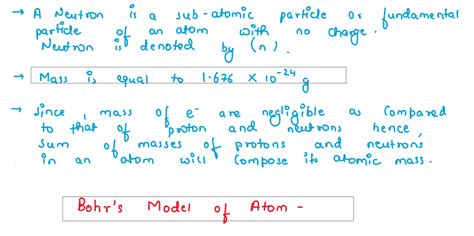 → A Neutron is a sub-atomic particle or fundamental
particle of an atom with no charge.
Neutron is denoted by (n).
→ Mass is equal to 1.676 × 10⁻²⁴ g
→ Since, mass of e⁻ are negligible as compared
to that of proton and neutrons hence,
sum of masses of protons and neutrons
in an atom will compose its atomic mass.
Bohr's Model of Atom -